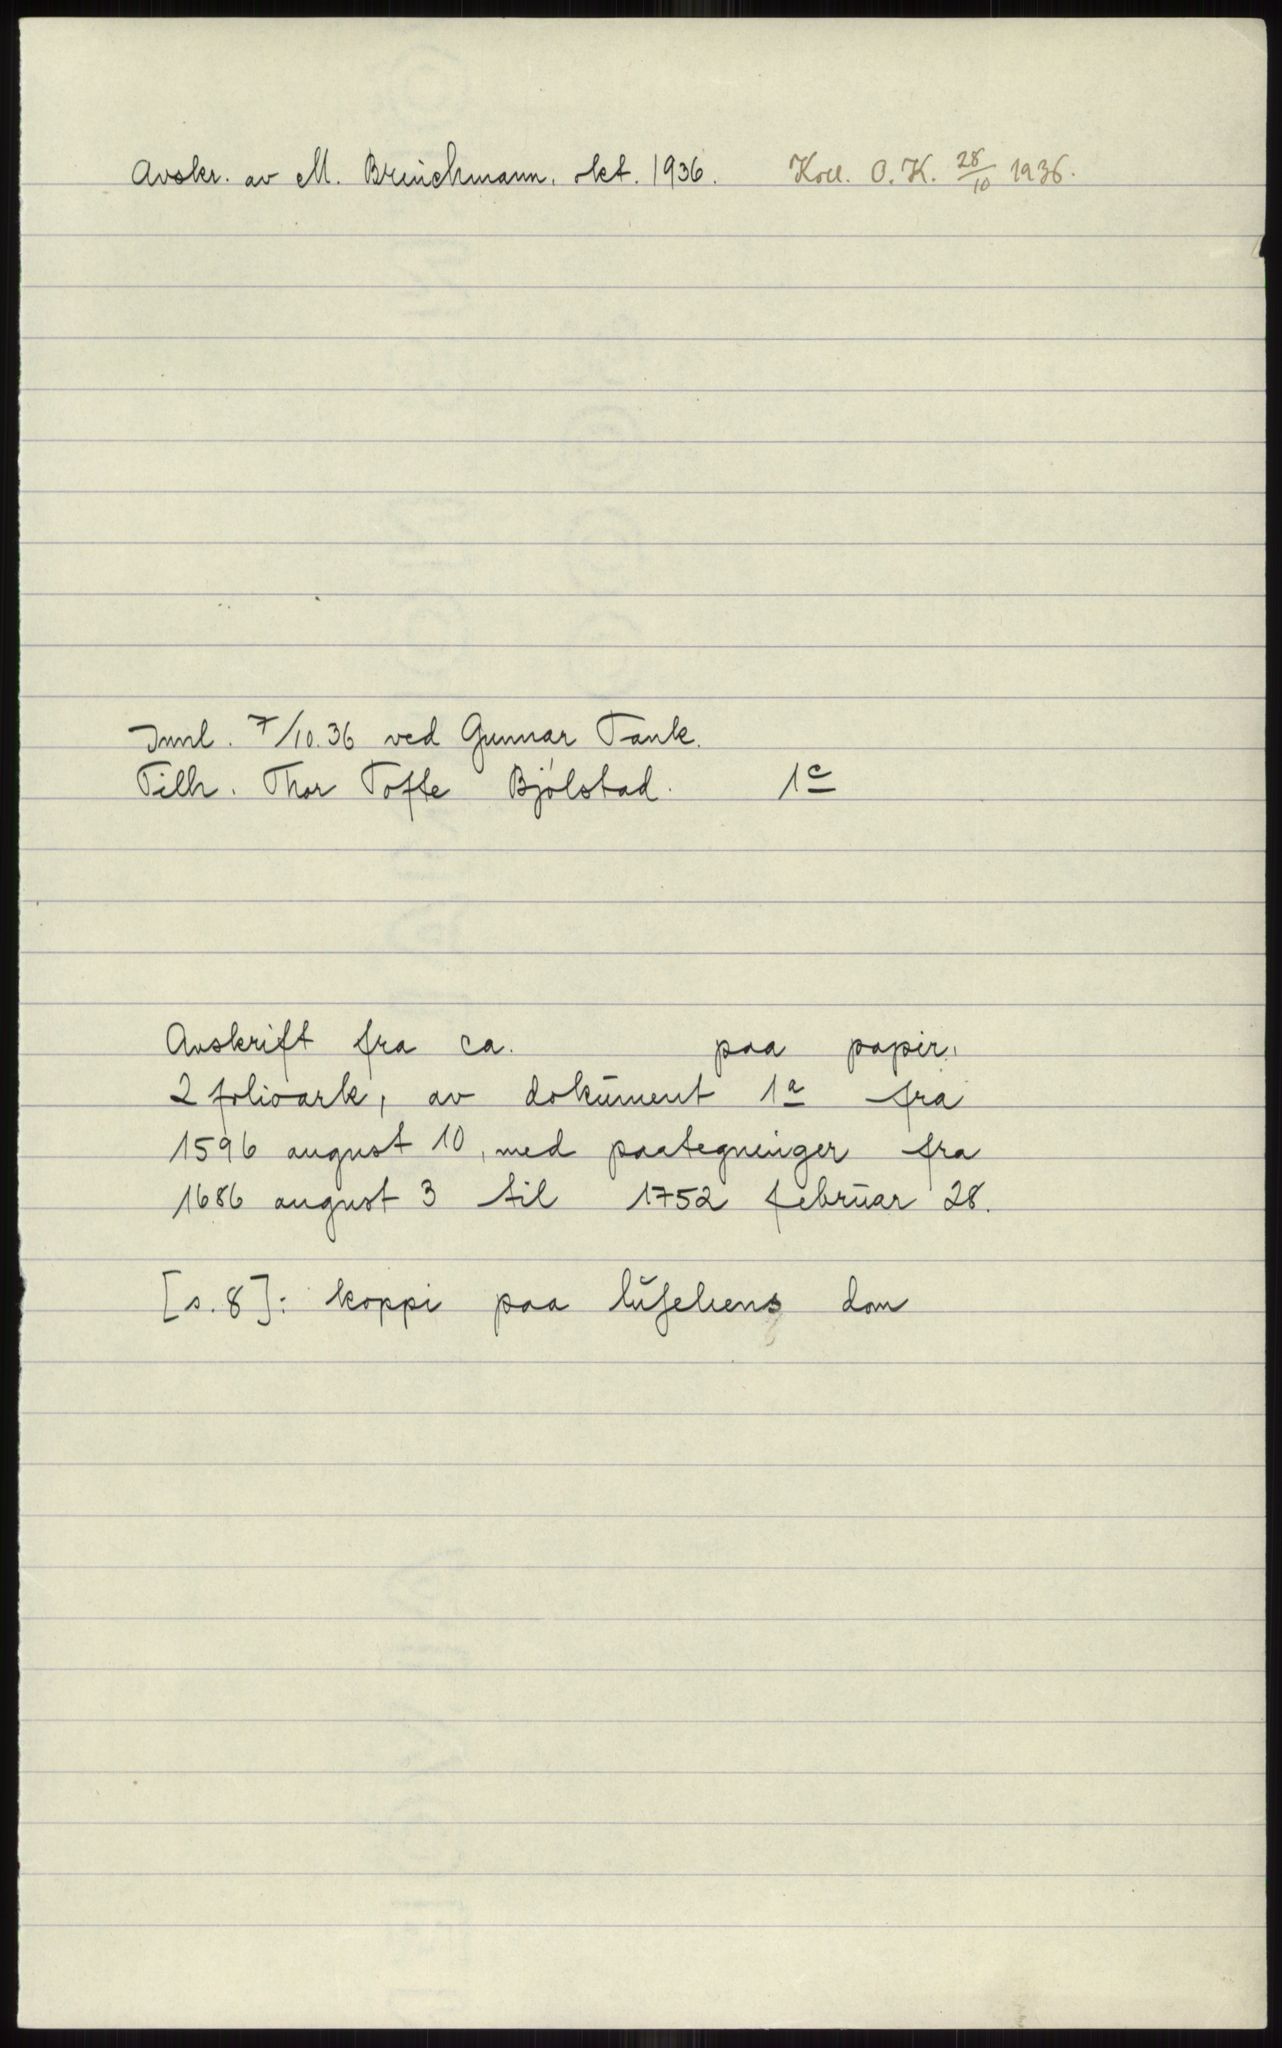 Avskr. av M. Brinchmann, okt. 1936. Koll. O. K. 28/10 1936.
Innl. 7/10.36 ved Gunnar Tank.
Tilh. Thor Tofte Bjølstad. 1c
Avskrift fra ca. paa papir,
2 folioark, av dokument 1a fra
1596 august 10, med paategninger fra
1686 august 3 til 1752 februar 28.
[s. 8]: koppi paa dom